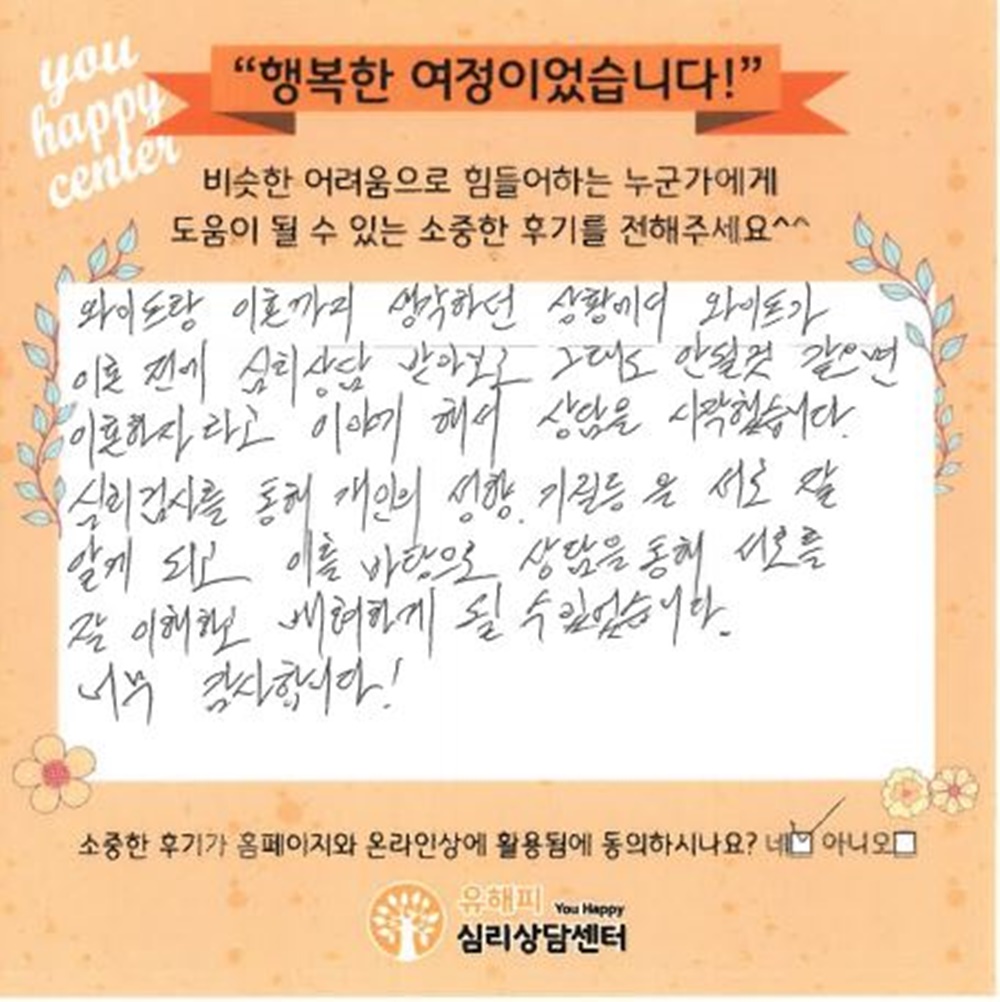 you
happy
center
“행복한 여정이었습니다!”
비슷한 어려움으로 힘들어하는 누군가에게
도움이 될 수 있는 소중한 후기를 전해주세요^^
와이프랑 이혼까지 생각하던 상황에서 와이프가
이혼 전에 심리상담 받아보고 그래도 안될것 같으면
이혼하자 라고 이야기 해서 상담을 시작했습니다.
심리검사를 통해 개인의 성향, 기질등을 서로 잘
알게 되고 이를 바탕으로 상담을 통해 서로를
잘 이해하고 배려하게 될 수 있었습니다.
너무 감사합니다!
소중한 후기가 홈페이지와 온라인상에 활용됨에 동의하시나요? 네 아니오
유해피 You Happy
심리상담센터